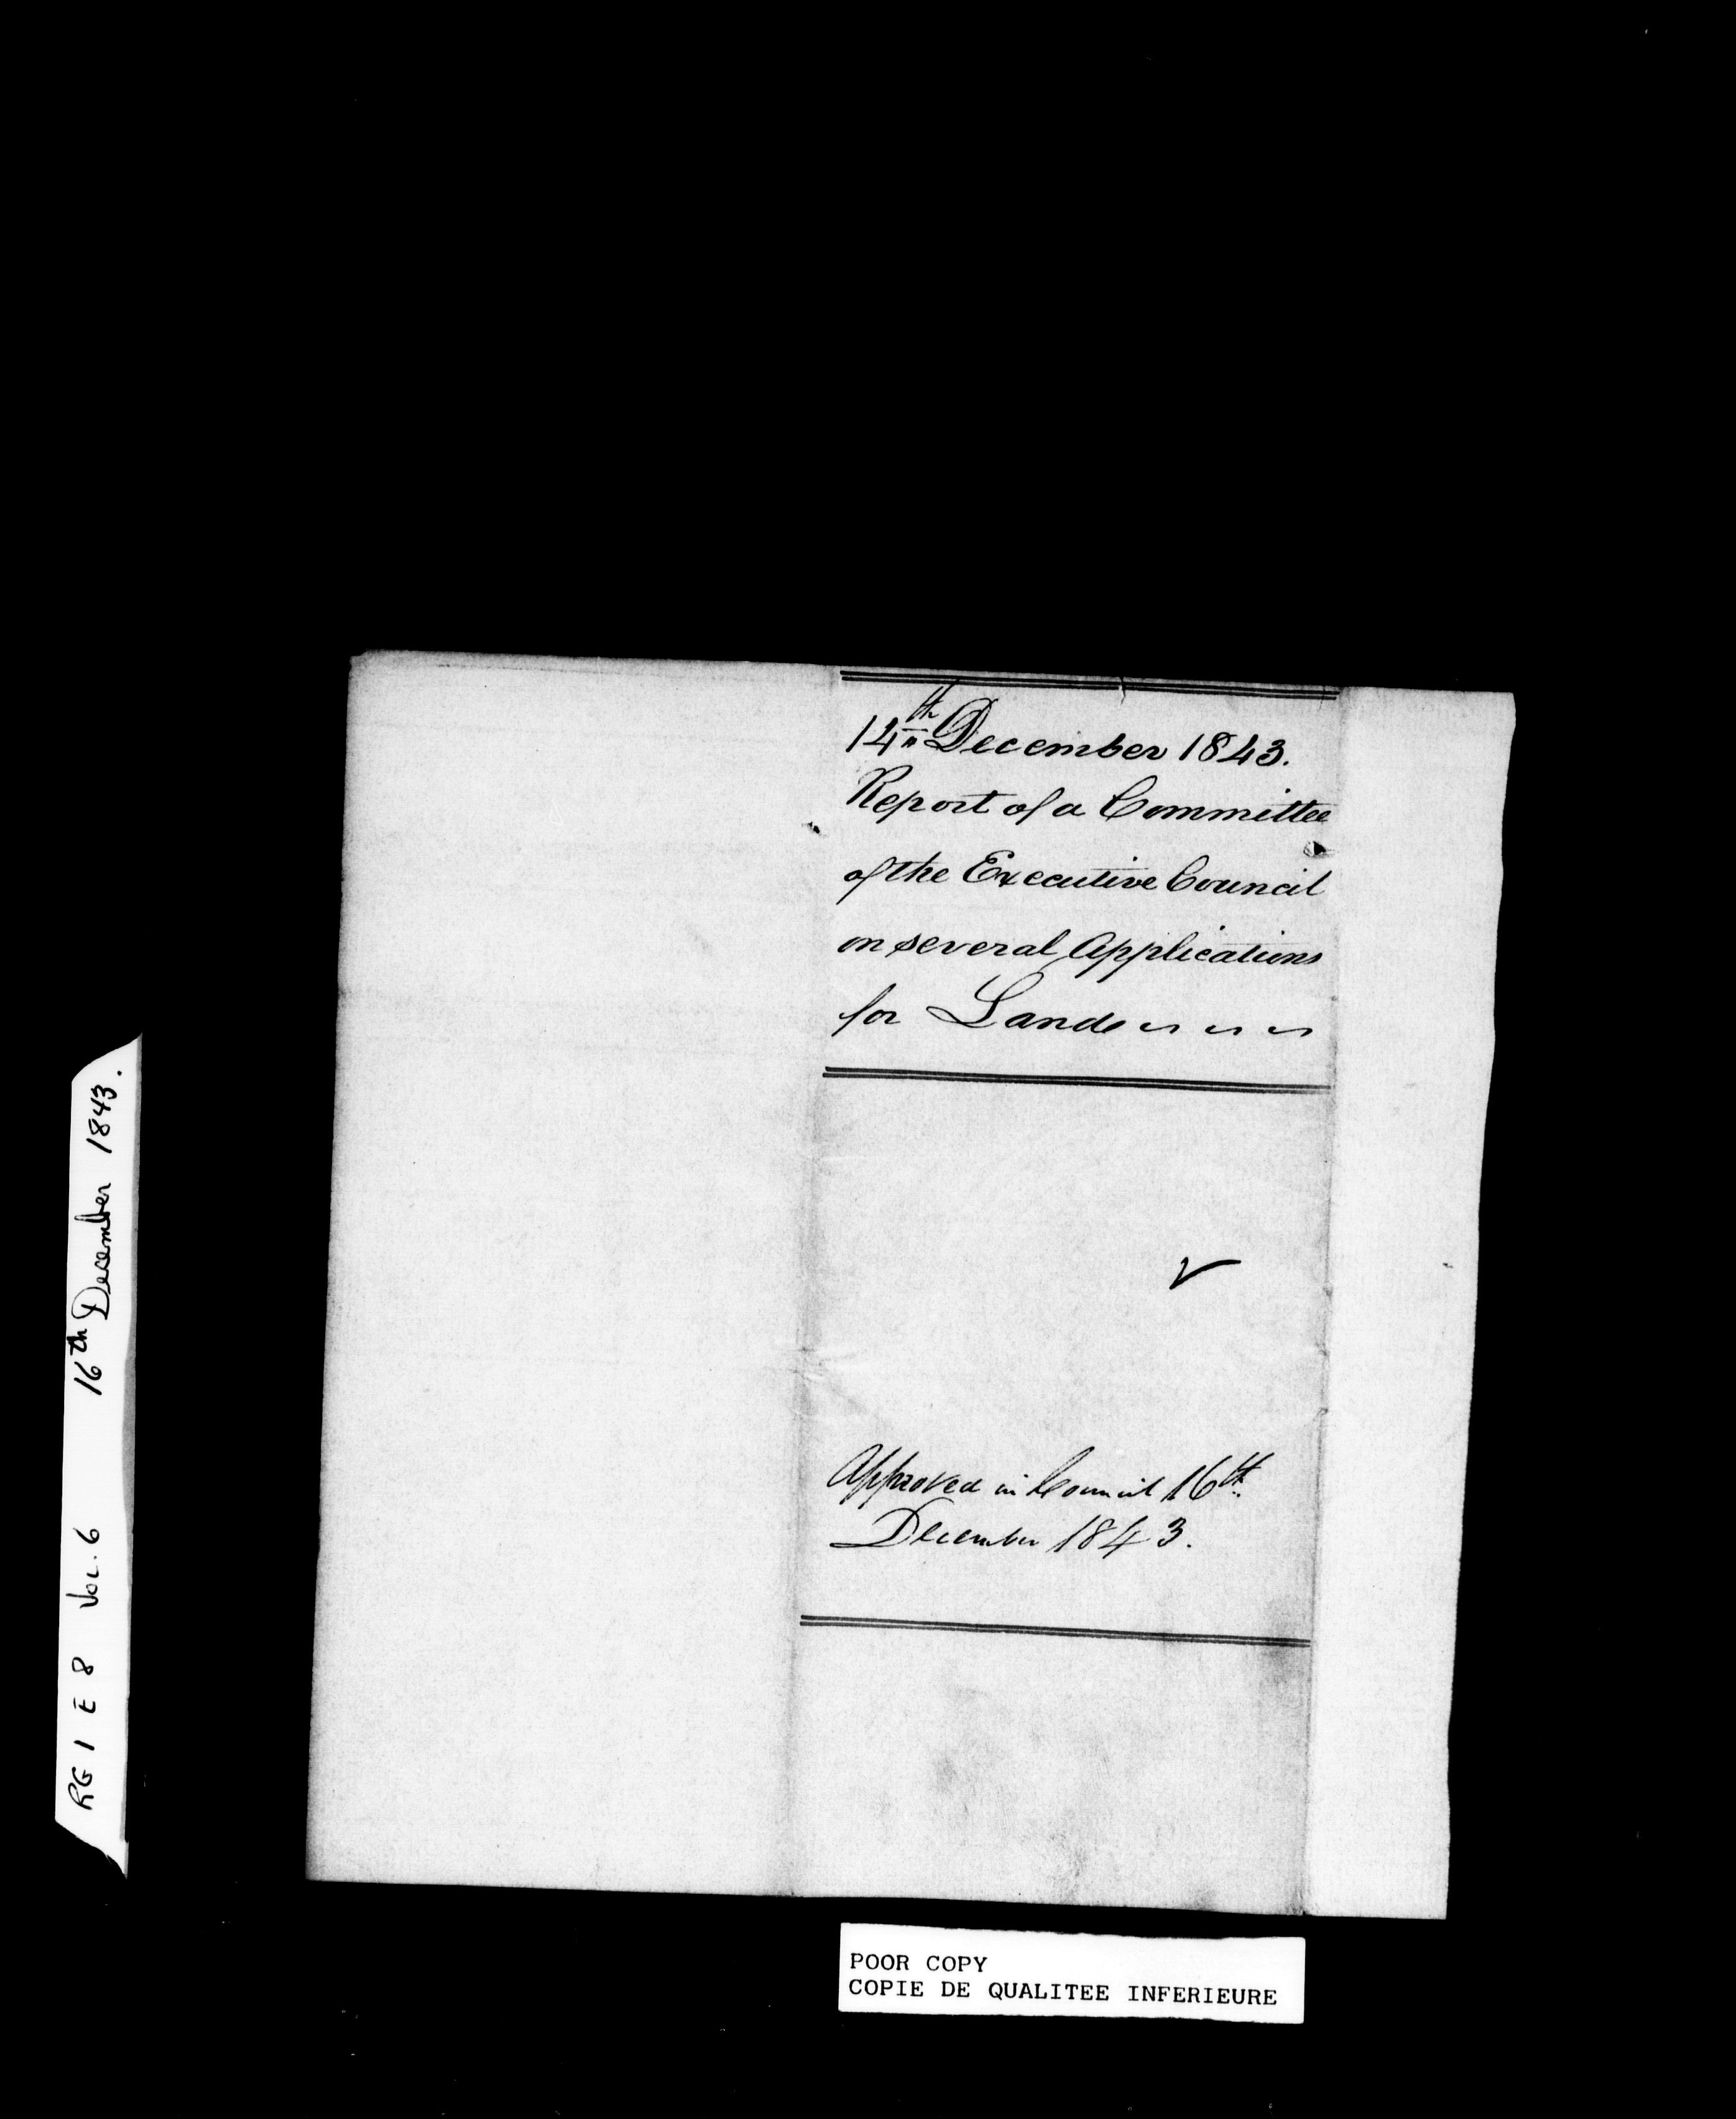 14th December 1843.
Report of a Committee
of the Executive Council
on several Applications
for Lands
Approved in Council 16th
December 1843.
RG 1 E 8 Vol. 6 16th December 1843.
POOR COPY
COPIE DE QUALITEE INFERIEURE